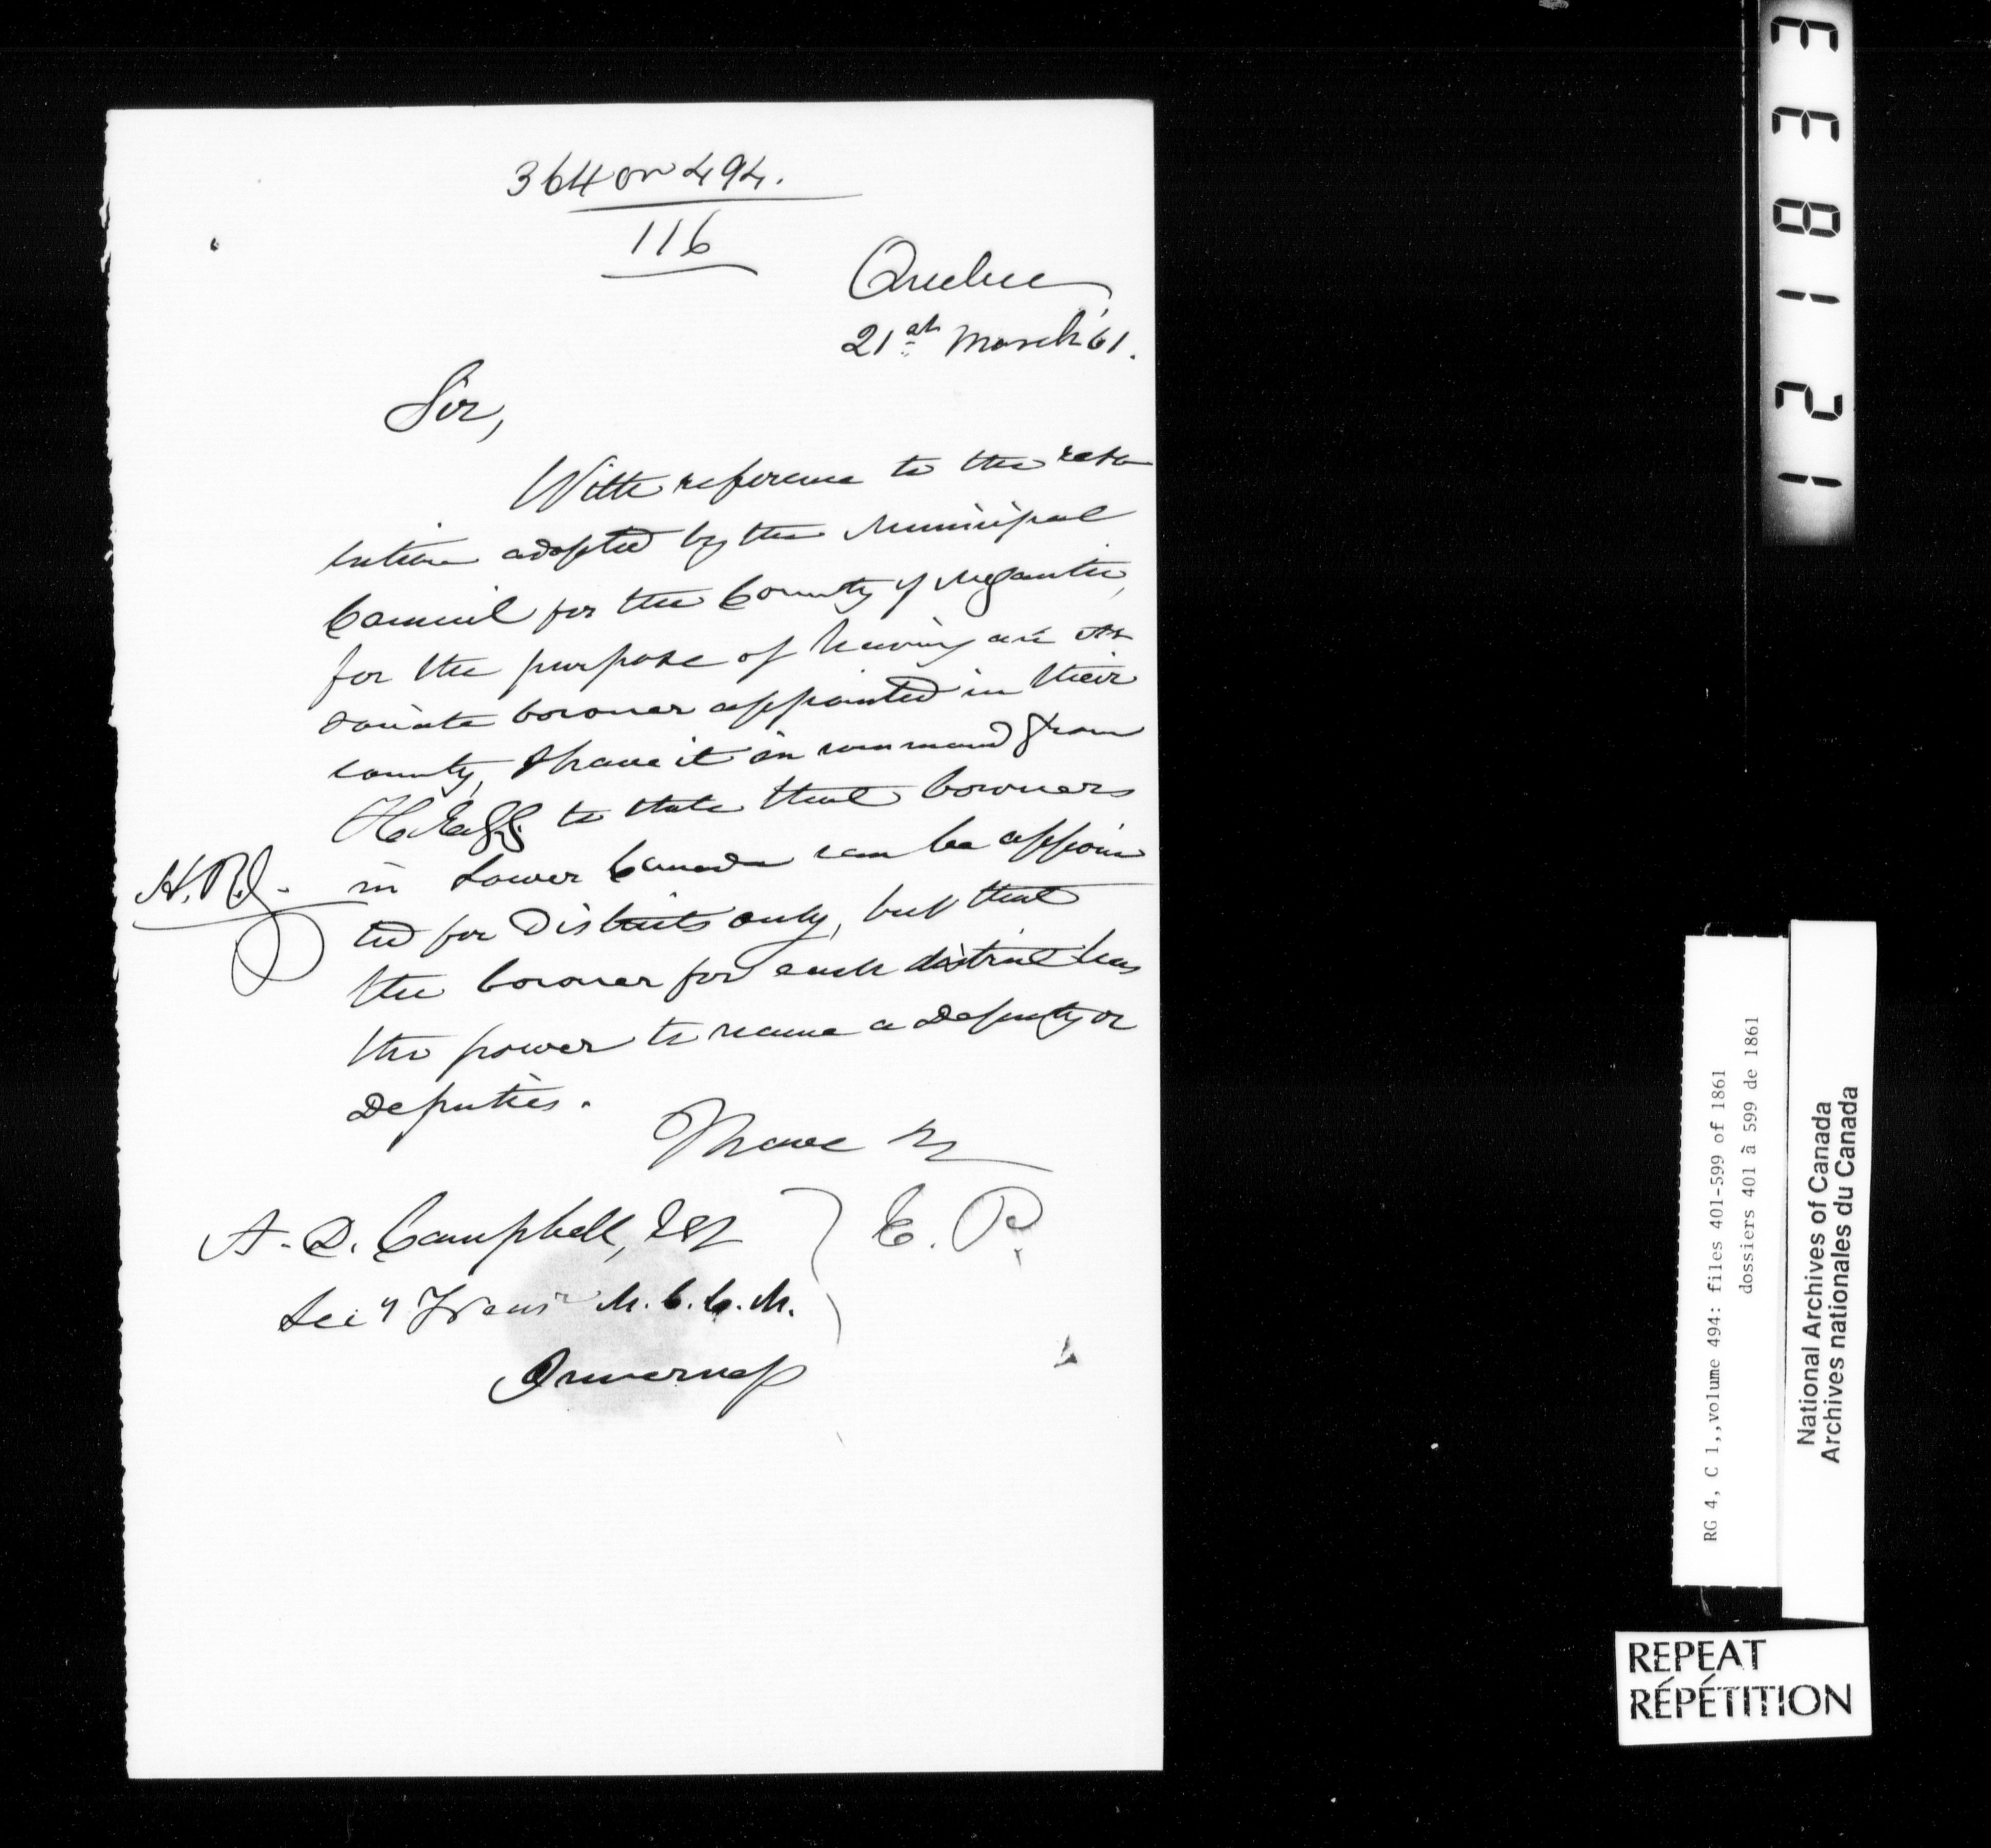 364 on 494.
116
Quebec,
21st March '61.
Sir,
With reference to the reso
lution adopted by the Municipal
Council for the County of Megantic,
for the purpose of having an As
sociate Coroner appointed in their
county, I have it in command from
H. Exy. to state that Coroners
in Lower Canada can be appoin
ted for Districts only, but that
the Coroner for each district has
the power to name a Deputy or
Deputies.
H.
I have &c
E. P.
A. D. Campbell, Esq
Secy Treasr M.C.C.M.
Inverness
338121
RG 4, C 1,,volume 494: files 401-599 of 1861
dossiers 401 à 599 de 1861
National Archives of Canada
Archives nationales du Canada
REPEAT
RÉPÉTITION